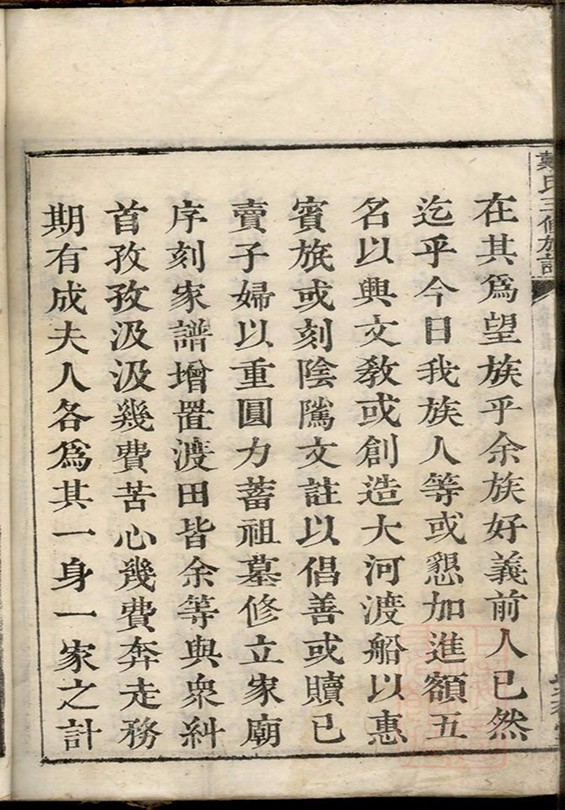 戴氏三修族譜
在其爲望族乎余族好義前人已然
迄乎今日我族人等或懇加進額五
名以興文敎或創造大河渡船以惠
賓旅或刻陰隲文註以倡善或贖已
賣子婦以重圓力蓄祖墓修立家廟
序刻家譜增置渡田皆余等與衆糾
首孜孜汲汲幾費苦心幾費奔走務
期有成夫人各爲其一身一家之計